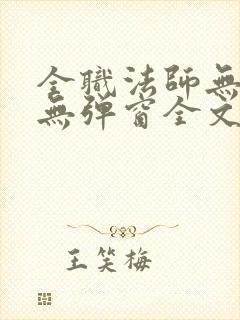 全職法師無
無彈窗全文
王笑梅